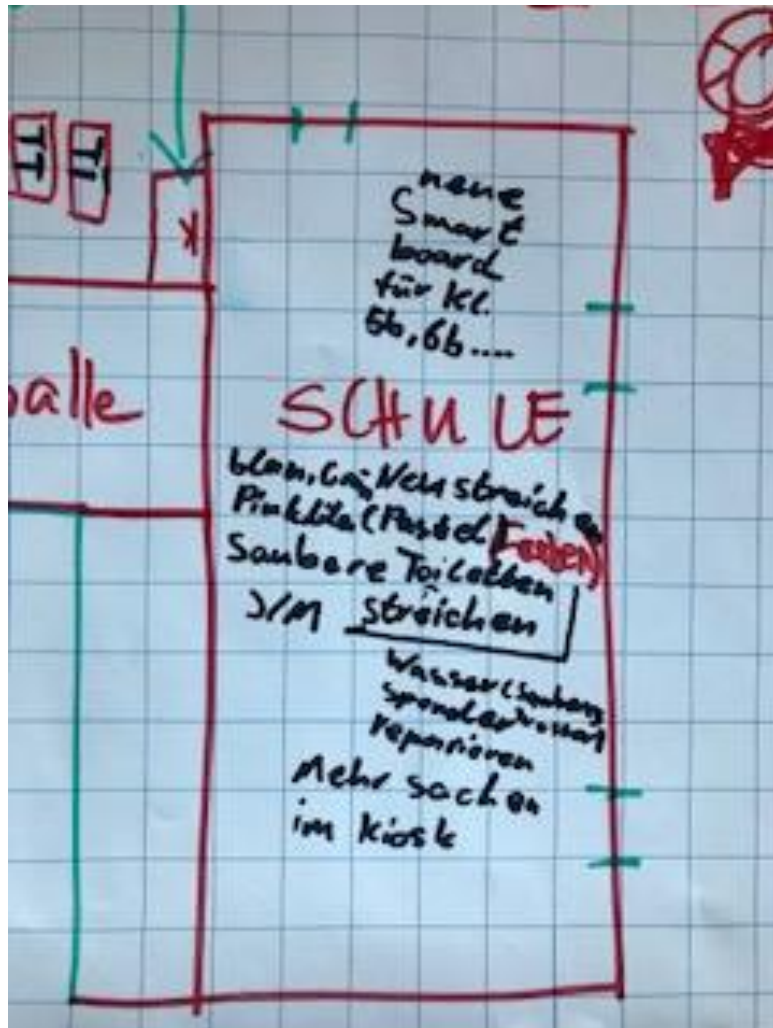 TT
TT
K
neue
Smart
board
für Kl.
5b, 6b....
alle
SCHULE
blau, Grün Neu streichen
Pink lila (Pastel Farben)
Saubere Toiletten
J/M streichen
Wasser (sauberes
spender Wasser)
reparieren
Mehr sachen
im Kiosk